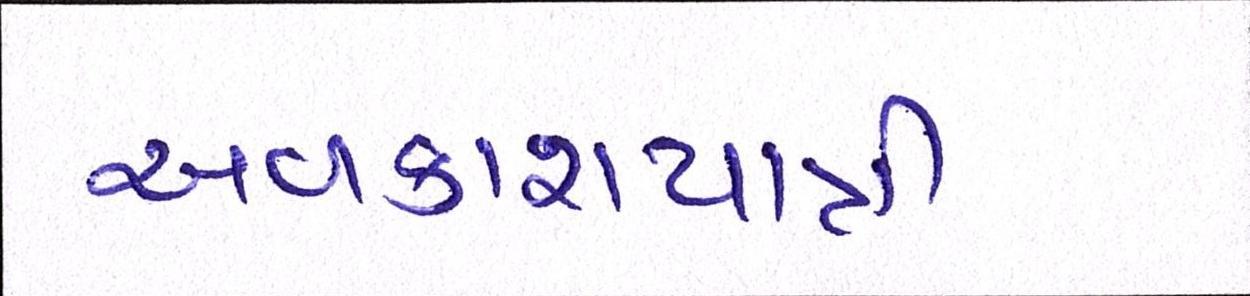 અવકાશયાત્રી